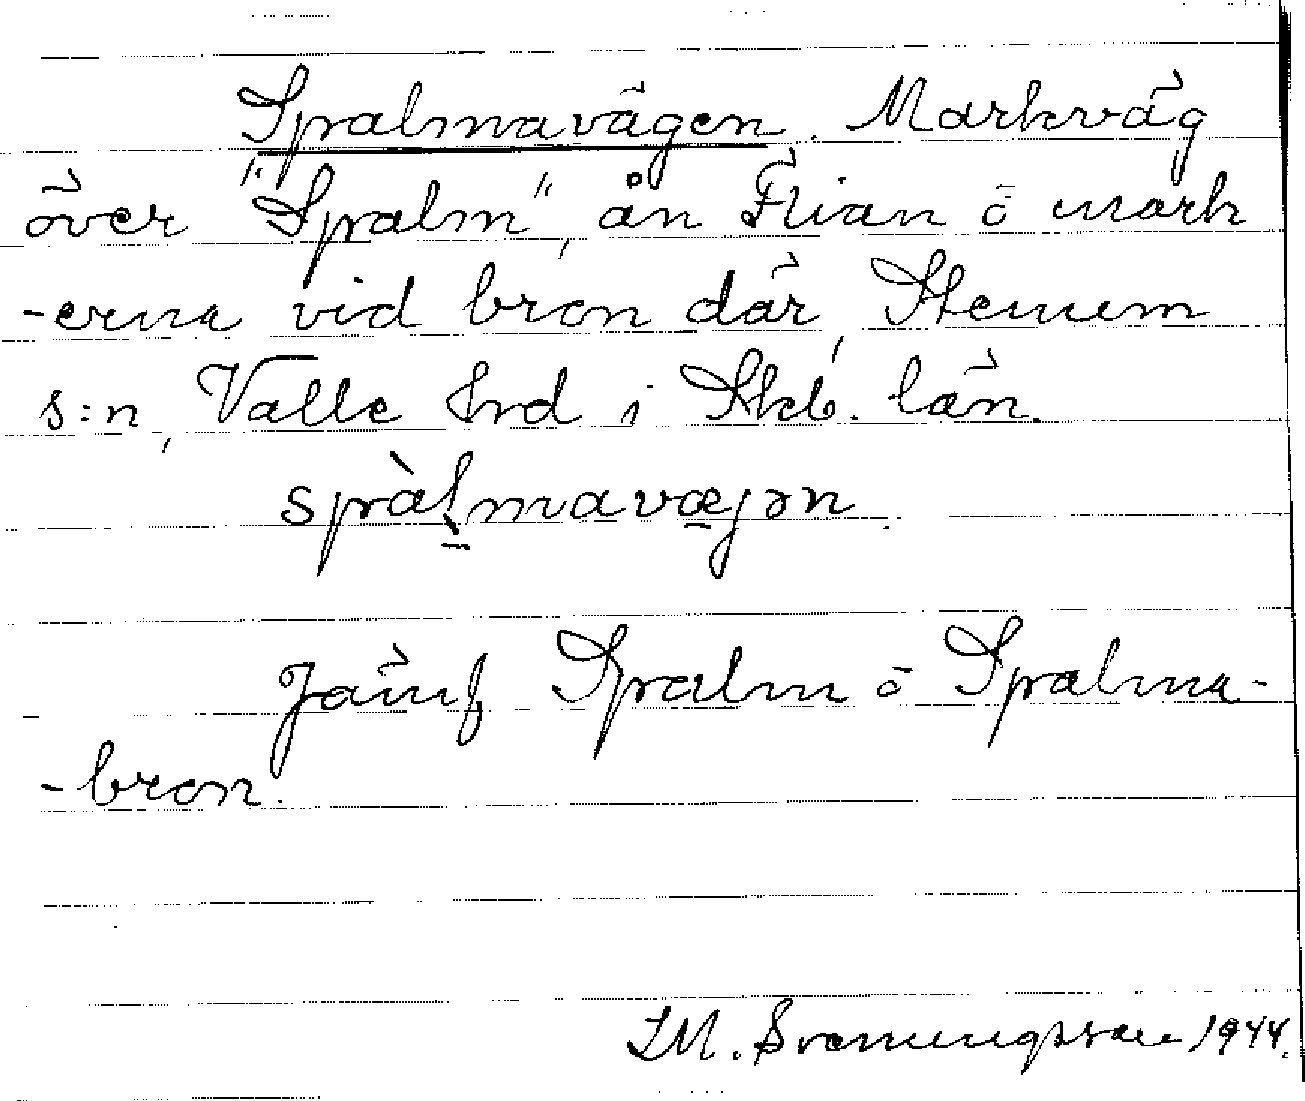 Spralmavägen. Markväg
över "Spralm", ån Flian ō mark
-erna vid bron där, Stenum
s:n, Valle hrd i Skb. län.
spràl̠mavæ̠jən.
Jämf Spralm ō Spralma-
-bron.
J M. Svenungsson 1944.